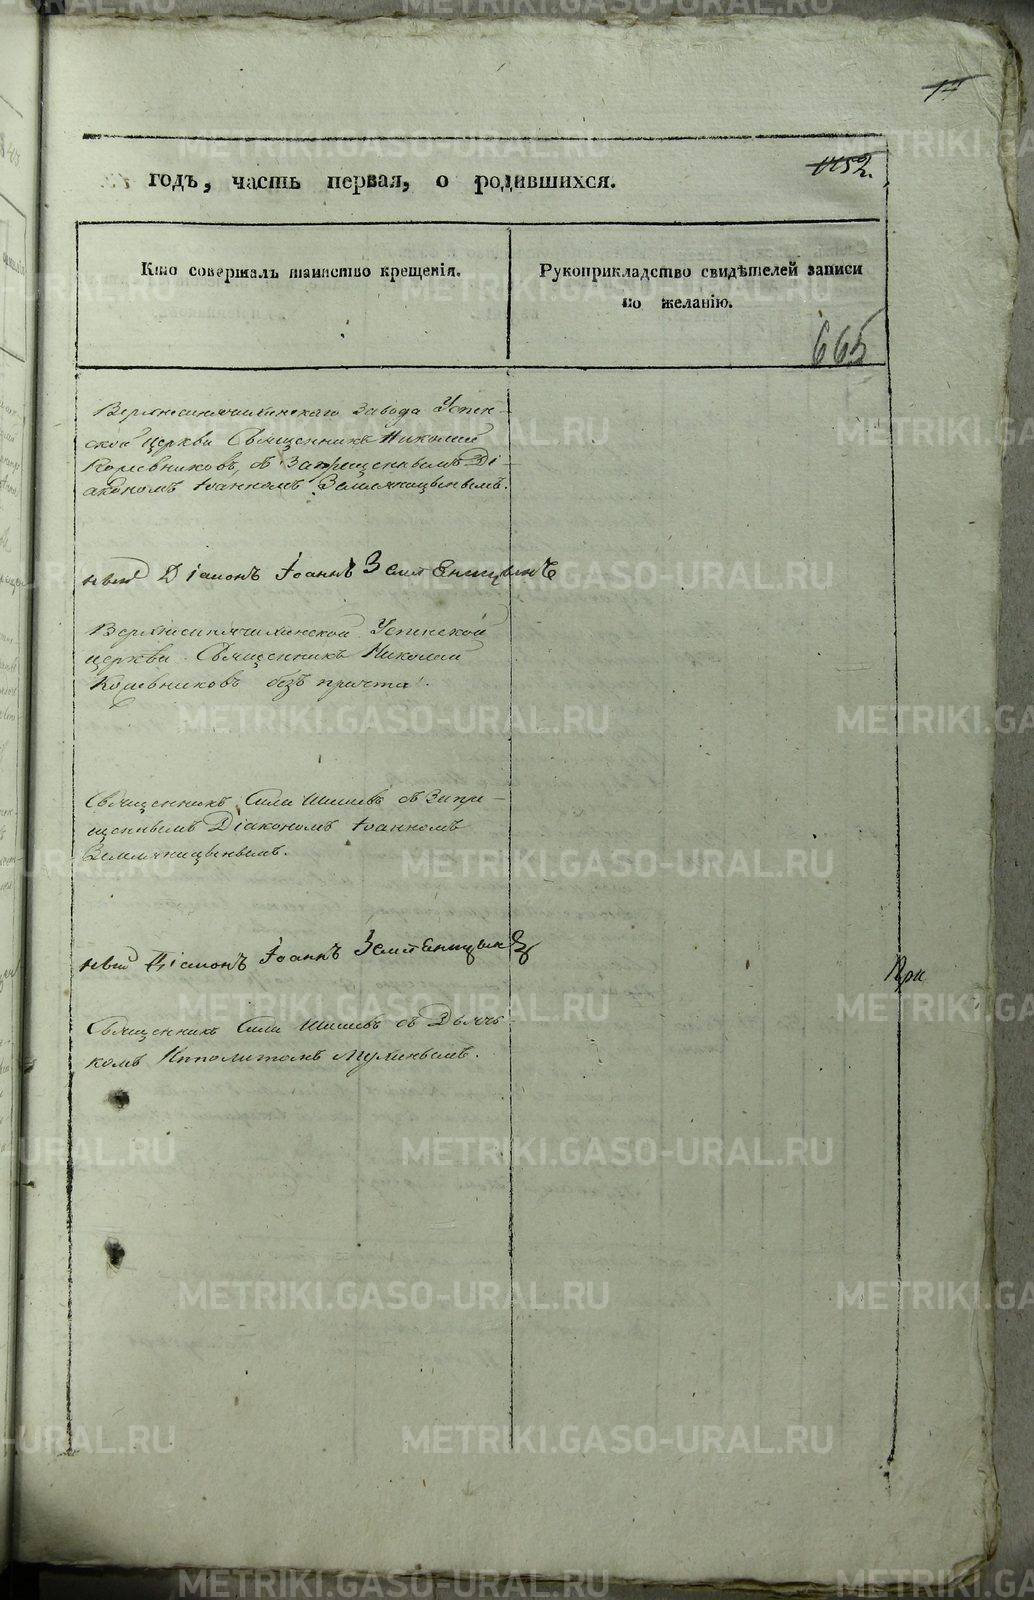 17
1152.
годъ, часть первая, о родившихся.
Кто совершалъ таинство крещенія.
Рукоприкладство свидѣтелей записи
по желанію.
665
Верхнесинячихинскаго Завода Успен-
ской церкви Священникъ Николай
Кожевниковъ, съ запрещеннымъ Ді-
акономъ Іоанномъ Земляницынымъ.
Діаконъ Іоаннъ Земляницынъ
Верхнесинячихинской Успенской
церкви Священникъ Николай
Кожевниковъ безъ причта.
Священникъ Сила Шишевъ съ Запре-
щеннымъ Діакономъ Іоанномъ
Земляницынымъ.
Діаконъ Іоаннъ Земляницынъ
При
Священникъ Сила Шишевъ съ Дьяч-
комъ Ипполитомъ
METRIKI.GASO-URAL.RU